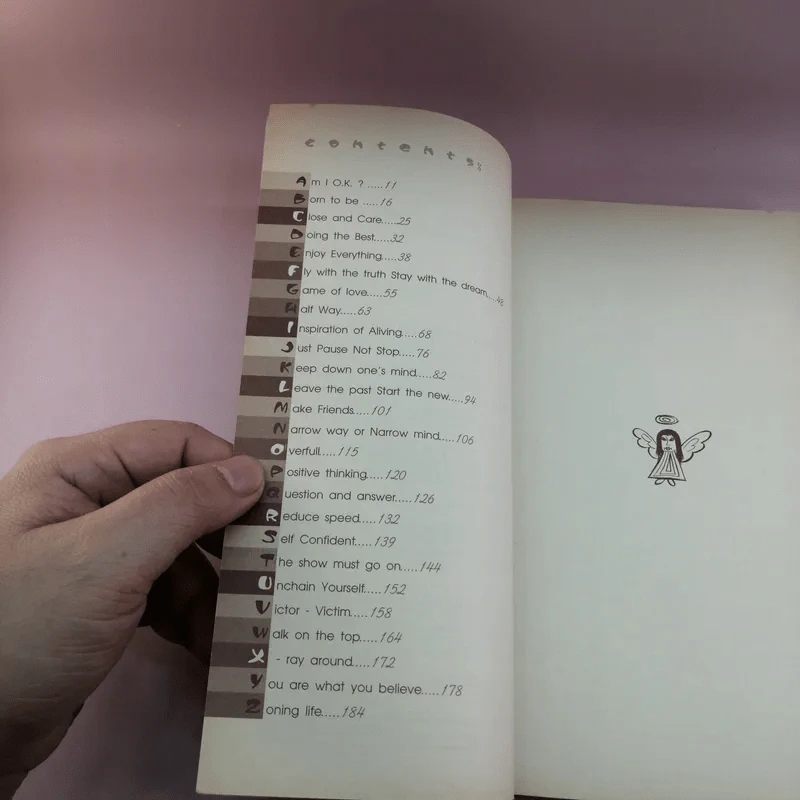 contents:
Am I O.K. ?.....11
Born to be.....16
Close and Care.....25
Doing the Best.....32
Enjoy Everything.....38
Fly with the truth Stay with the dream.....48
Game of love.....55
Half Way.....63
Inspiration of Aliving.....68
Just Pause Not Stop.....76
Keep down one's mind.....82
Leave the past Start the new.....94
Make Friends.....101
Narrow way or Narrow mind.....106
Overfull.....115
Positive thinking.....120
Question and answer.....126
Reduce speed.....132
Self Confident.....139
The show must go on.....144
Unchain Yourself.....152
Victor - Victim.....158
Walk on the top.....164
X - ray around.....172
You are what you believe.....178
Zoning life.....184